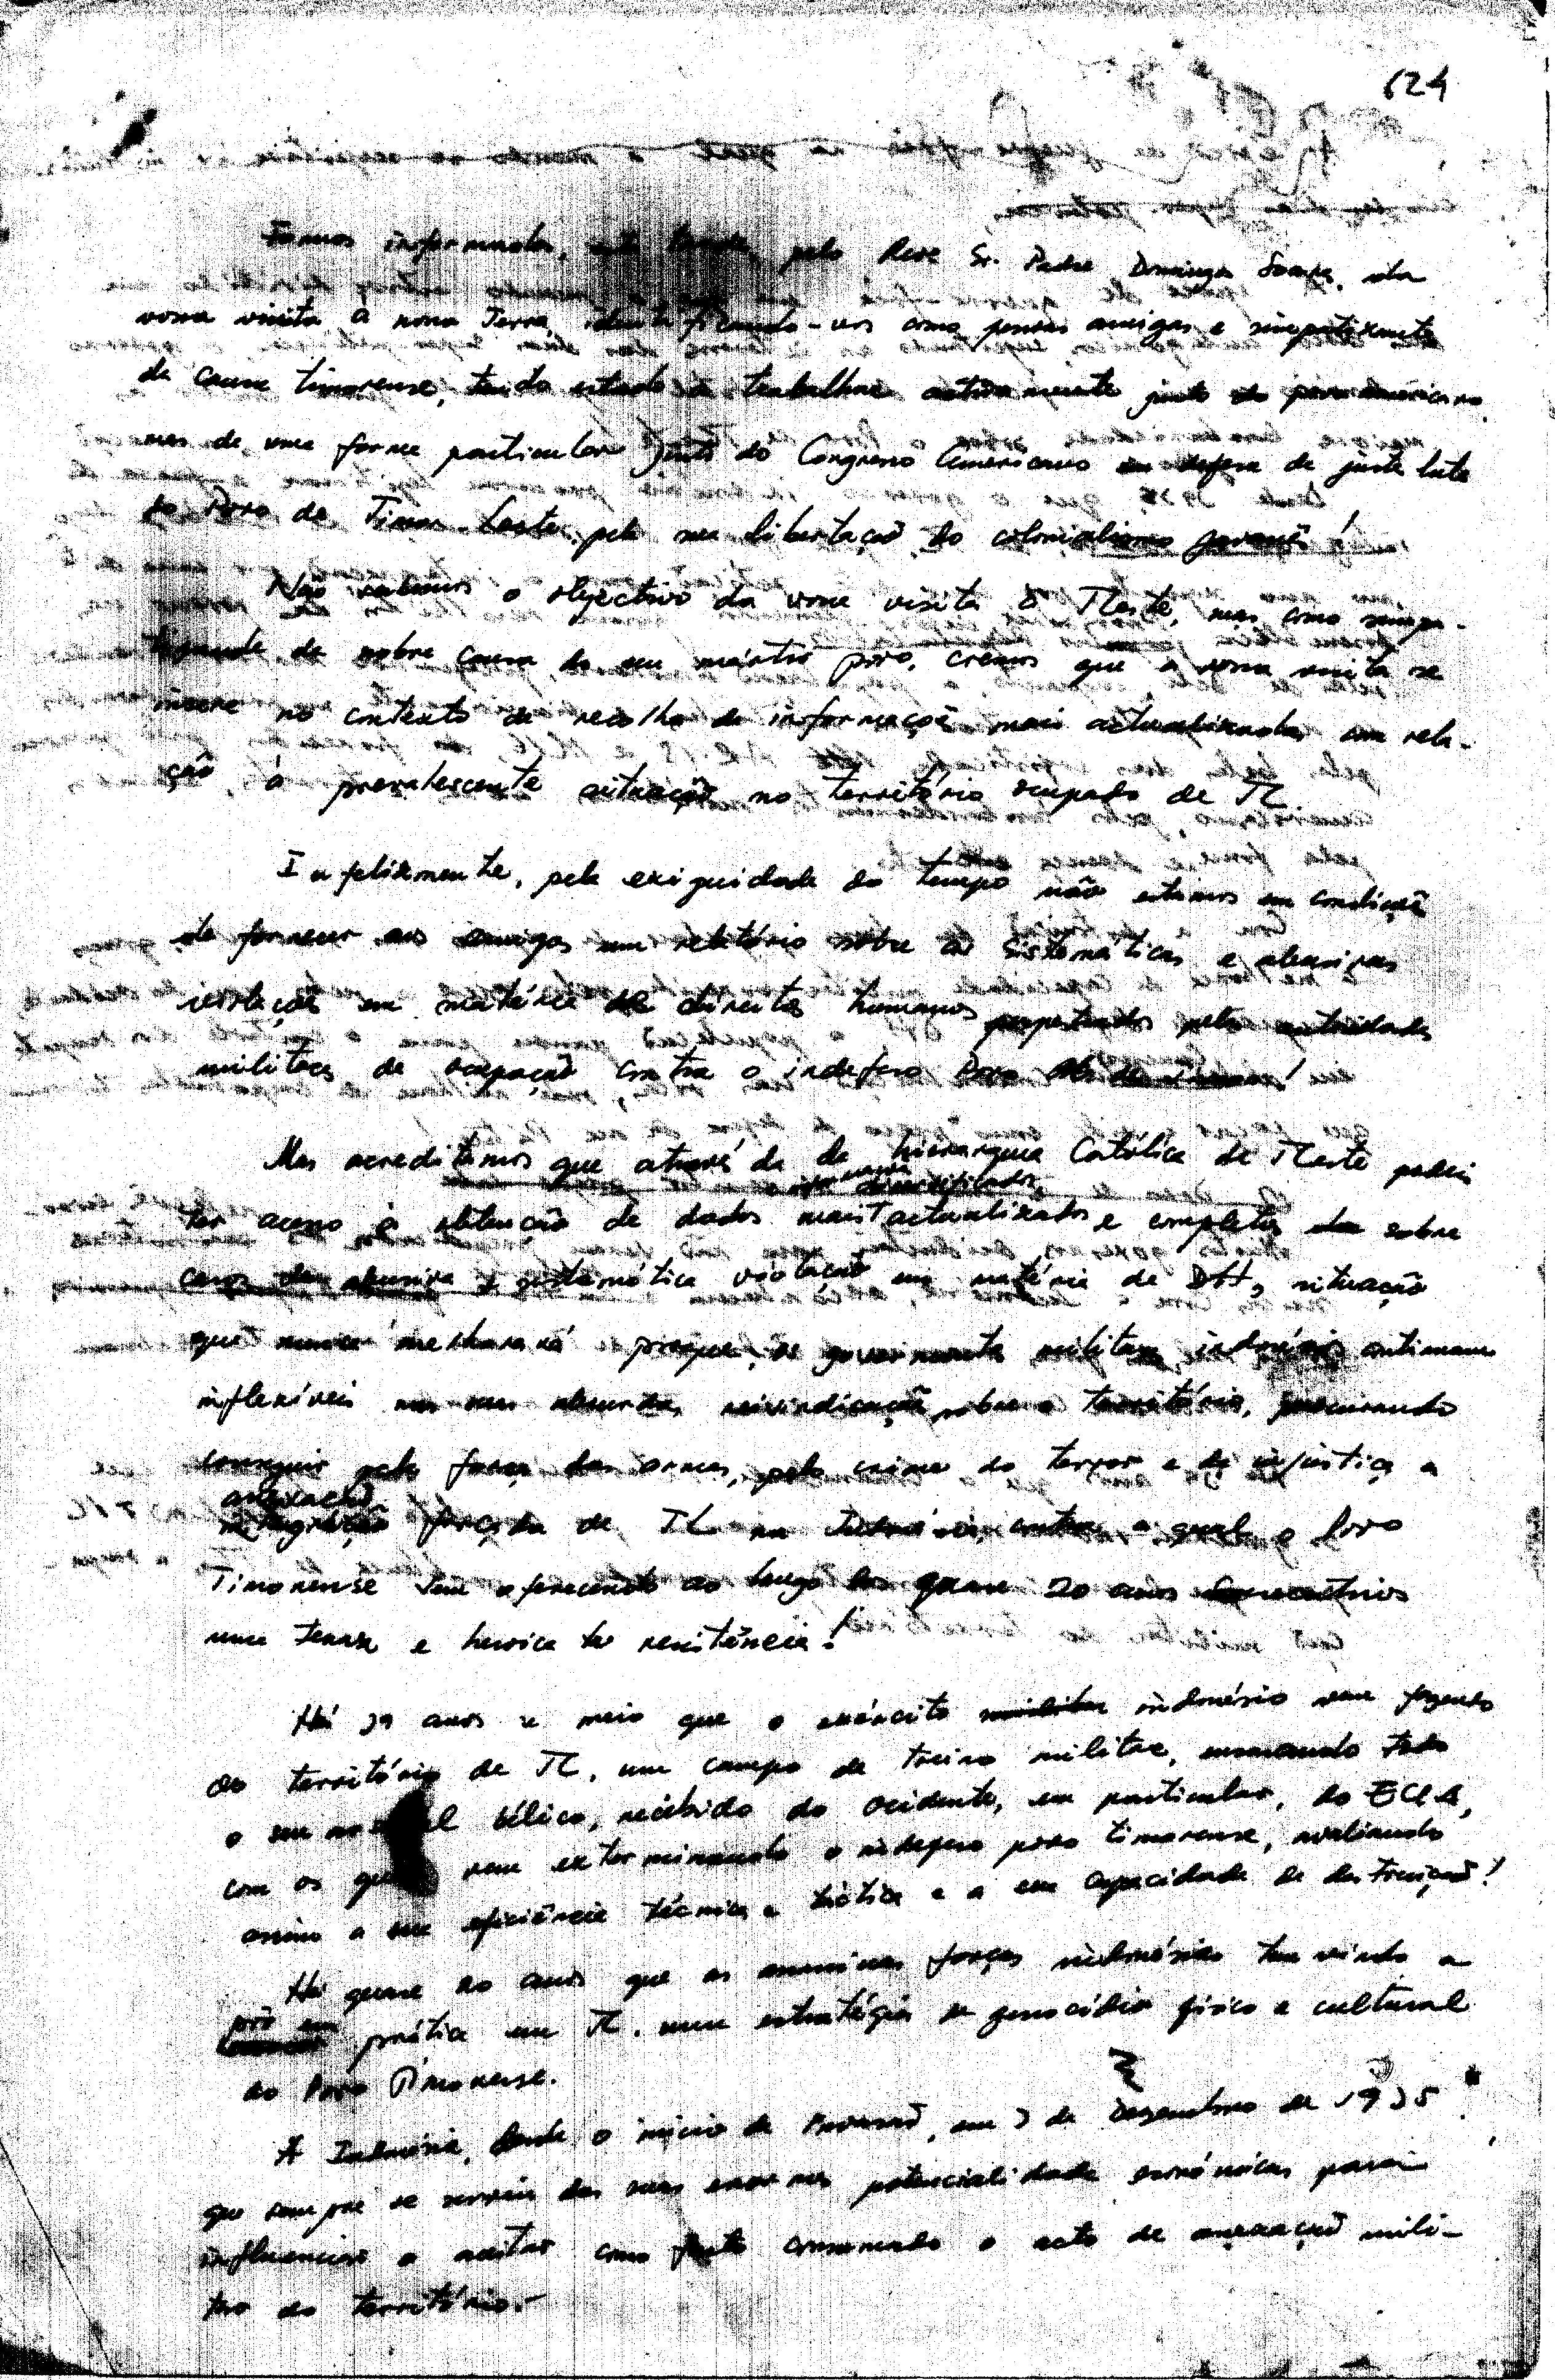 624
Fomos informados, pelo Revo Sr. Padre Domingos Soares, da
vossa visita à nossa Terra, identificando-vos como pessoas amigas e simpatizantes
da causa timorense, tendo estado a trabalhar activamente junto do povo americano
mas de uma forma particular junto do Congresso Americano em defesa da justa luta
do Povo de Timor-Leste, pela sua libertação do colonialismo javanês!
Não sabemos o objectivo da vossa visita a TLeste, mas como simpa-
tizante da nobre causa do seu mártir povo, cremos que a vossa visita se
insere no contexto da recolha de informações mais actualizadas em rela-
ção à prevalescente situação no território ocupado de TL.
Infelizmente, pela exiguidade do tempo não estamos em condições
de fornecer aos amigos um relatório sobre as sistemáticas e abusivas
violações em matéria de direitos humanos perpetrados pelas autoridades
militares de ocupação contra o indefeso Povo de Timor!
Mas acreditamos que através da hierarquia Católica de TLeste podeis
diversificados,
ter acesso à obtenção de dados mais actualizados e completos sobre
casos de abusiva e sistemática violação em matéria de DH, situação
que nunca melhorará porque, os governantes militares indonésios continuam
inflexíveis nas suas absurdas reivindicações sobre o território, procurando
conseguir pela força das armas, pelo crime do terror e da injustiça a
anexação
integração forçada de TL na Indonésia, contra a qual o Povo
Timorense vem oferecendo ao longo dos quase 20 anos consecutivos
uma tenaz e heroica resistência!
Há 19 anos e meio que o exército militar indonésio vem fazendo
do território de TL, um campo de treino militar, ensaiando todo
o seu bélico, recebido do ocidente, em particular, do EUA,
com os vem exterminando o indefeso povo timorense, avaliando
assim a sua eficiência técnica e táctica e a sua capacidade de destruição!
Há quase 20 anos que as assassinas forças indonésias tem vindo a
pôr em prática em TL. uma estratégia de genocídio físico e cultural
do Povo Timorense.
A Indonésia, desde o início da invasão, em 7 de Dezembro de 1975
que sempre se serviu das suas enormes potencialidades económicas para
influenciar a aceitar como facto consumado o acto de anexação mili-
tar do território.-